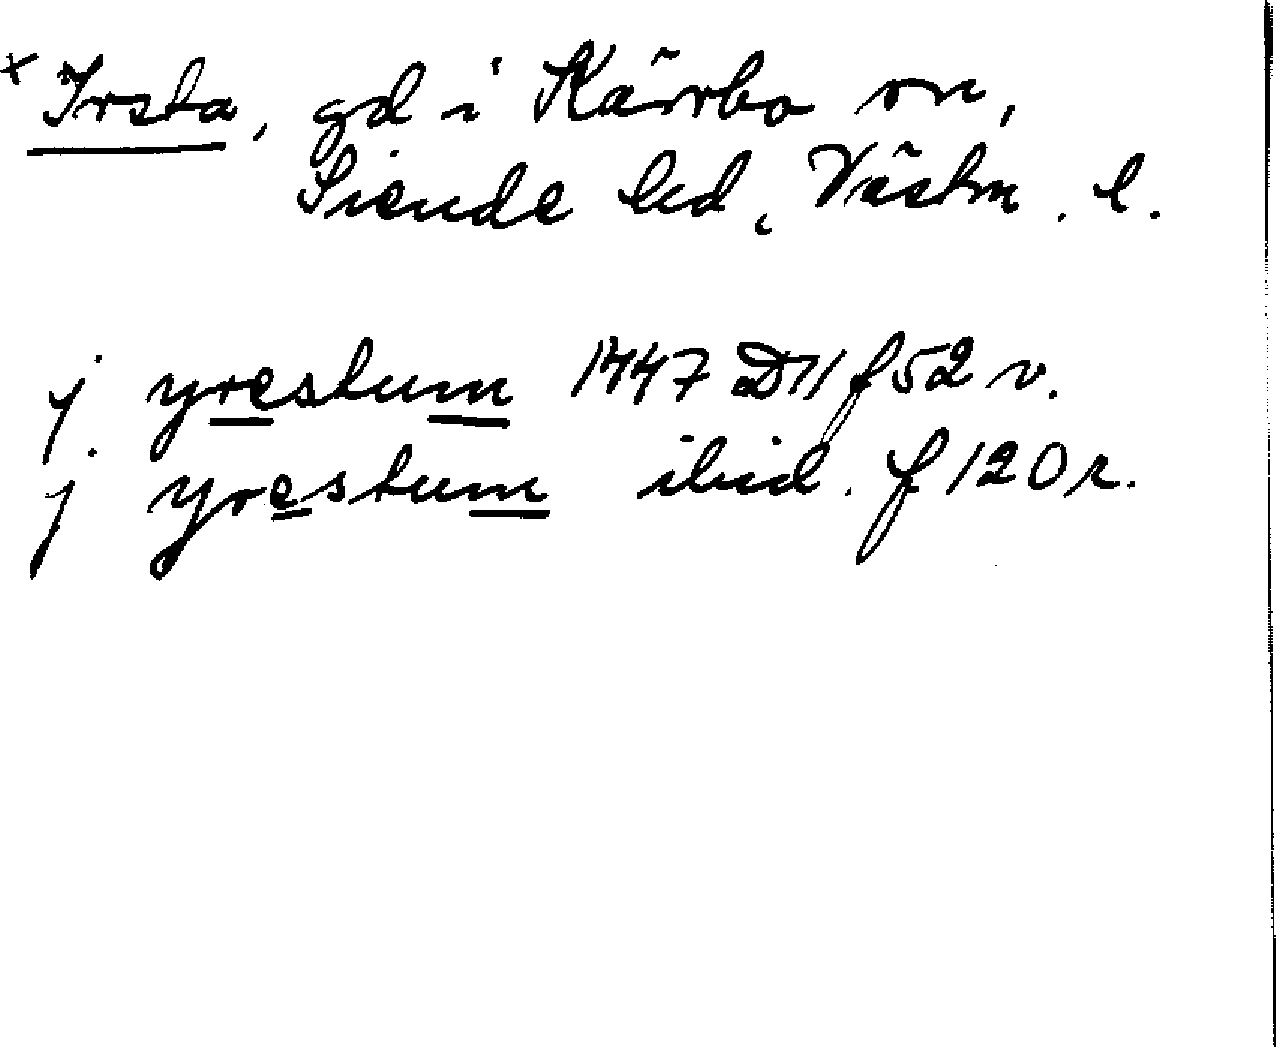 x Irsta, gd i Kärrbo sn,
Siende hd, Västm. l.
j. yrestum 1447 D11 f 52 v.
j yrestum ibid. f 120 r.